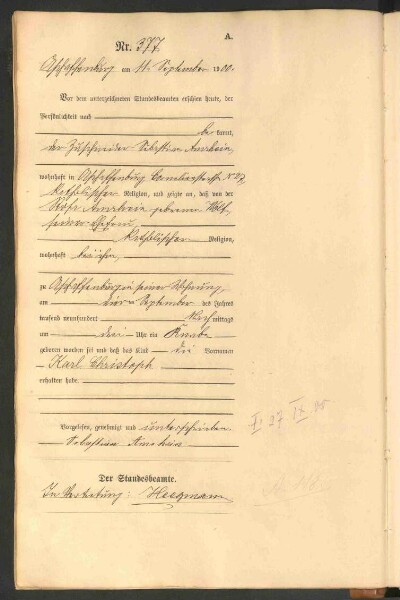 A.
Nr. 377
Aschaffenburg am 11. September 1900.
Vor dem unterzeichneten Standesbeamten erschien heute, der
Persönlichkeit nach
be kannt,
der Zuschneider Sebastian Amrhein
wohnhaft in Aschaffenburg N° 27
katholischer Religion, und zeigte an, daß von der
Rosa Amrhein geborene
seiner Ehefrau
katholischer Religion,
wohnhaft bei ihm,
zu Aschaffenburg in seiner Wohnung,
am September des Jahres
tausend neunhundert Nach mittags
um drei Uhr ein Knabe
geboren worden sei und daß das Kind die Vornamen
Karl Christoph
erhalten habe.
Vorgelesen, genehmigt und unterschrieben
Sebastian Amrhein
Der Standesbeamte.
In Vertretung: Heegmann
27 IX 00